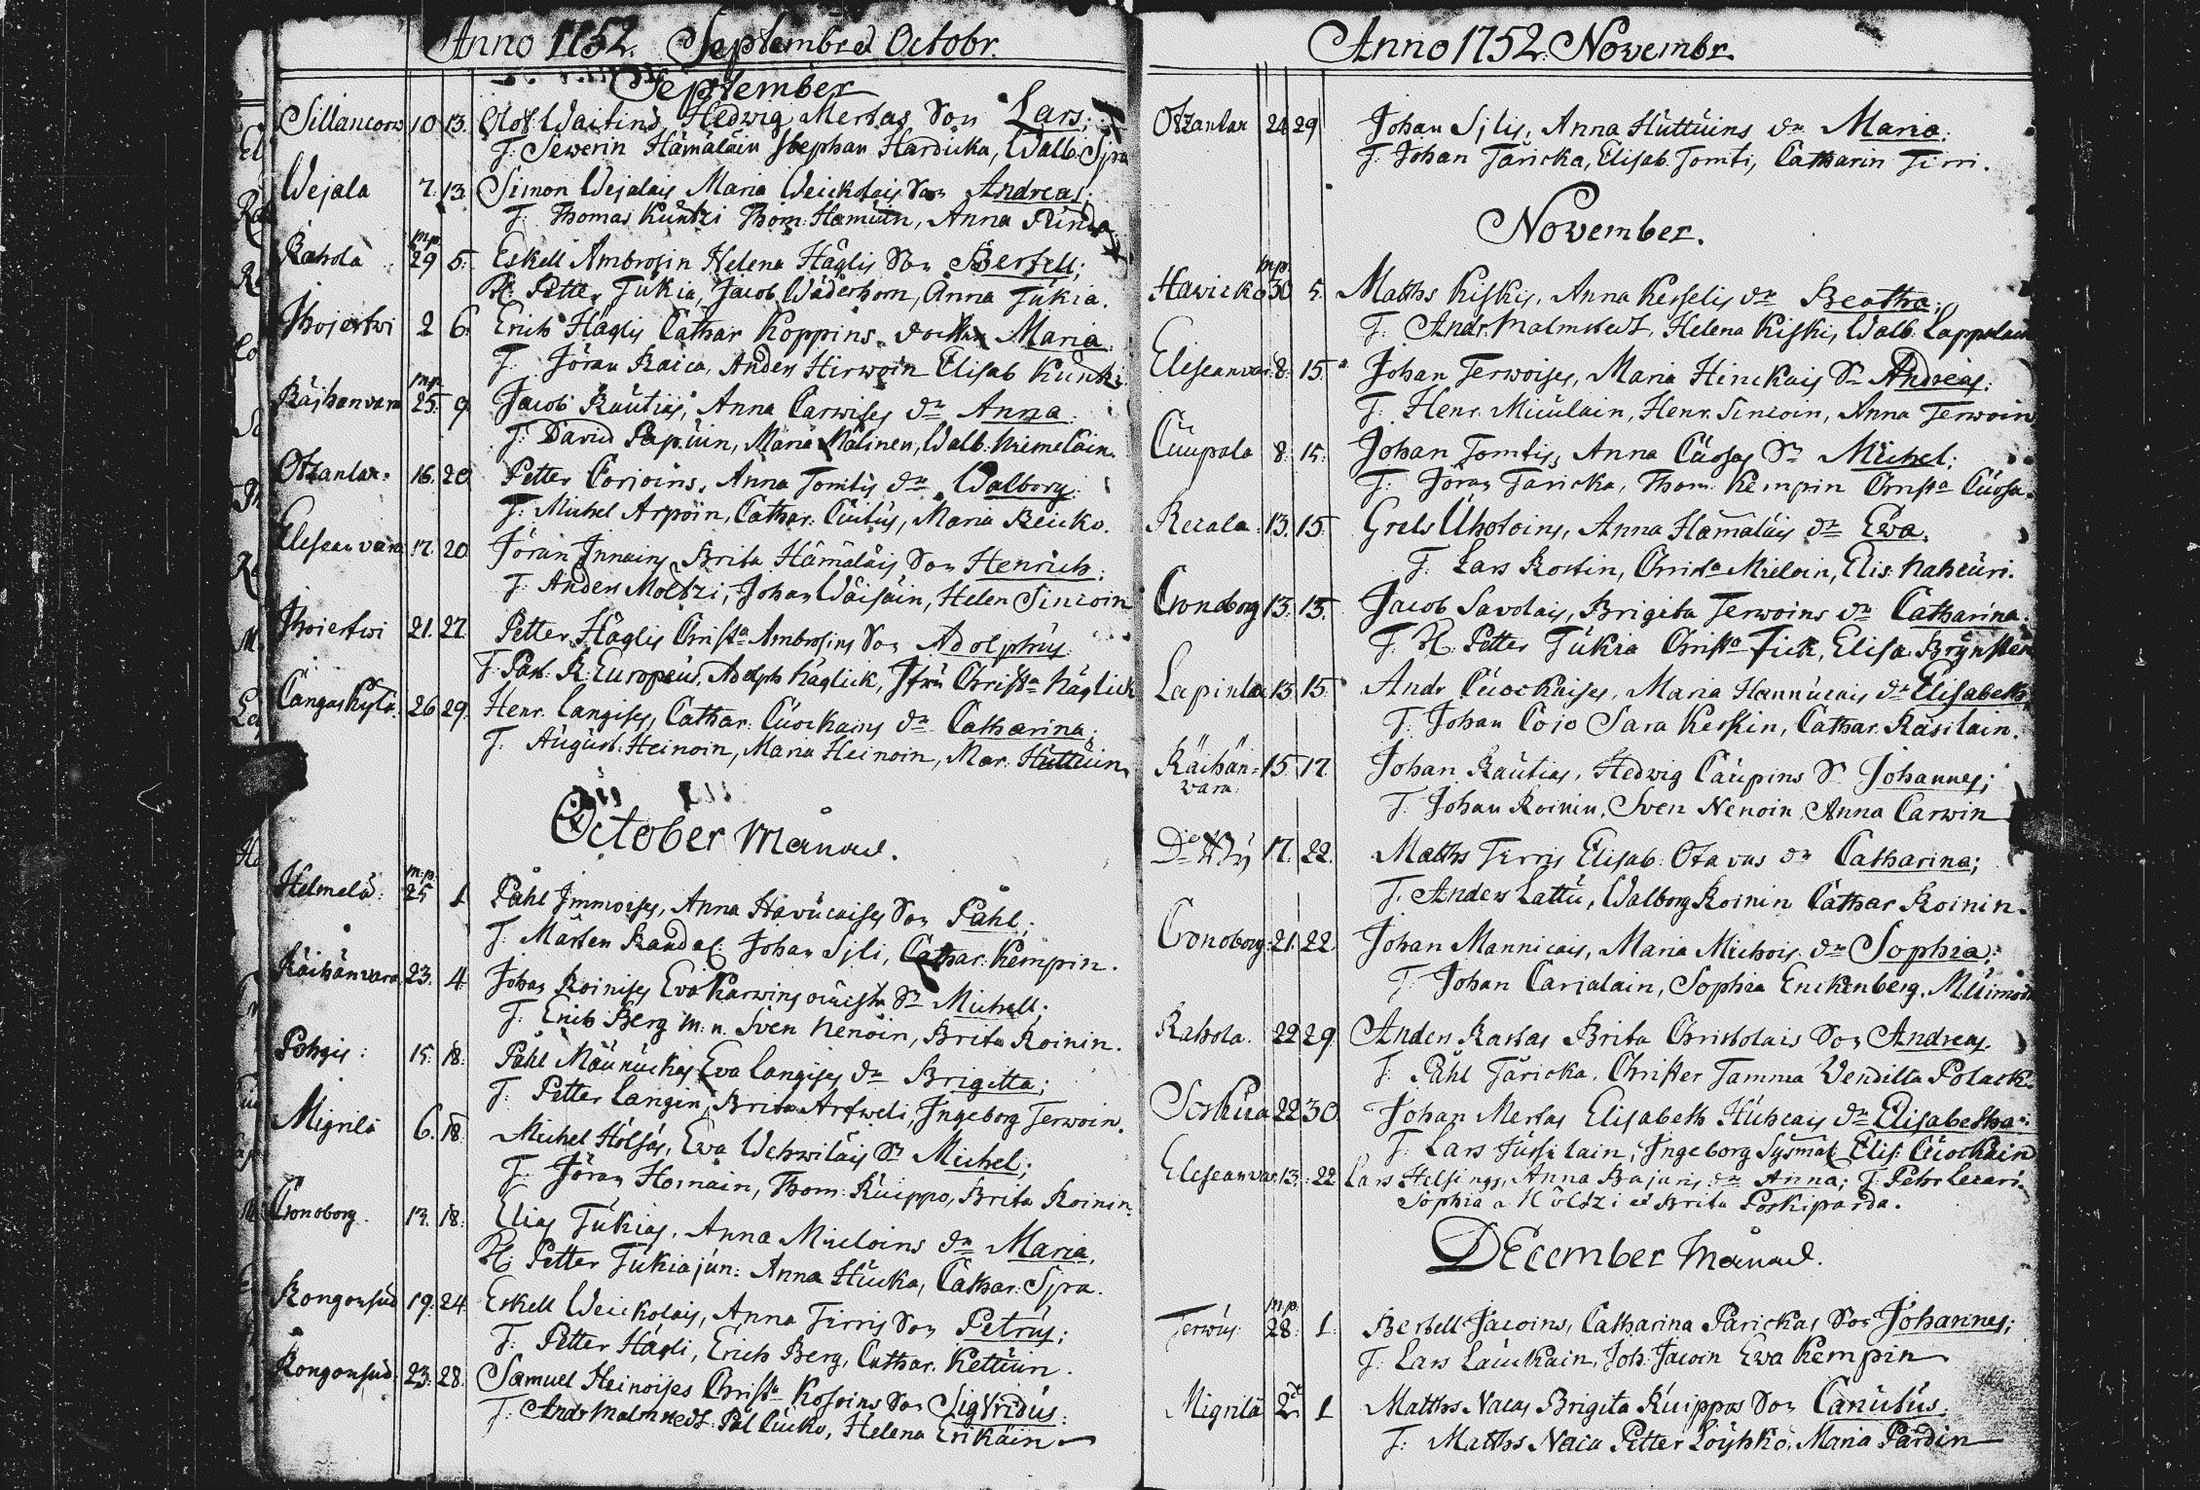 Anno 1752. Septembr et Octobr.
September
Sillancorw 10 13. Olof Waitins Hedwig Mertas Son Lars;
T: Sewerin Hämäläin Stephan Hardicka, Walb. Sjra
Wejala 7. 13. Simon Wejalais Maria Weickolais Son Andreas;
T: Thomas Kuntzi Thom: Hamuin, Anna
Rahola mp. 29 5. Eskell Ambrosin Helena Häglis Son Bertell;
H: Petter Tukia, Jacob Wäderhorn, Anna Tukia.
Thoiertwi 2 6. Erich Häglis Cathar Koppins dotter Maria.
T: Jöran Raica, Anders Hirwoin Elisab Kuntzi
Räihänvara mp. 25. 9. Jacob Rautias, Anna Carwises dr Anna.
T: David Papuin, Maria Malinen, Walb. Miemeläin.
Otzanlax 16. 20. Petter Corjoins, Anna Tomtis dr Walborg.
T: Michel Arpoin, Cathar. Cuitus, Maria Reicko.
Elesenvara 17. 20 Jöran Innains Brita Hämäläis Son Henrich;
T: Anders Moltzi, Johan Wäisäin, Helen Sincoin
Thoiertwi 21. 27. Petter Häglis Christa Ambrosins Son Adolphus.
T: Past. R: Europeus, Adolph Häglick, Jfru Christa Häglick
Cangaskylä 26 29. Henr. Langises, Cathar. Cuockains dr Catharina;
T: August. Heinoin, Maria Heinoin, Mar. Huttuin
October Månad.
Helmelä mp. 25 1 Påhl Immoises, Anna Havucaises Son Påhl;
T: Mårten Randal: Johan Sjli, Cathar. Kempin.
Räihänvara 23. 4 Johan Roinises Eva Karwins oäckta Sn Michell;
T: Erich Berg m. n. Sven Nenoin, Brita Roinin.
Pohjis: 15. 18. Påhl Maunuckas Eva Langises dr Brigitta;
T: Petter Langen, Brita Artweli, Ingeborg Terwoin.
Mignlä 6. 18. Michel Hölsäs, Eva Wehwiläis Sn Michel;
T: Jöran Hornain, Thom: Kuippo, Brita Roinin.
Cronoborg. 17. 18. Elias Tukias, Anna Mieloins dr Maria.
H: Petter Tukia jun: Anna Hucka, Cathar: Sjra.
Kongonsuo 19. 24. Eskell Weickolais, Anna Tirris Son Petrus;
T: Petter Hägli, Erich Berg, Cathar. Kettuin.
Kongonsuo. 23. 28. Samuel Heinoises Christa Kosoins Son Sigfridus:
T: Andr Malmstedt Pål Cucko, Helena Erikäin
Anno 1752. Novembr.
Otzanlax 24 29 Johan Sjlis, Anna Huttuins dr Maria.
T: Johan Täricka, Elisab. Tomti, Catharin Tirri.
November.
Hawicko mp. 30 5. Matths Kiskis, Anna Kesselis dr Beatha.
T: Andr. Malmstedt, Helena Kiski, Walb. Lappalain
Elesenvar. 8. 15. Johan Terwoises, Maria Hinckais Sn Andreas.
T: Henr. Miculain, Henr. Sincoin, Anna Terwoin
Cuupala 8. 15. Johan Tomtis, Anna Cuosas Sn Michel;
T: Jöran Täricka, Thom. Kempin Christa Cuosa.
Recala 13. 15. Grels Uhotoins, Anna Hämäläis dr Ewa.
T: Lars Rostin, Christa Mieloin, Elis. Nahcuri.
Cronoborg 13. 15. Jacob Savolais, Brigita Terwoins dr Catharina.
T. H. Petter Tukia Christa Fick, Elisa. Brynsten
Lapinlax 13. 15. Andr Cuockaises, Maria Hannucais dr Elisabeth,
T: Johan Coio Sara Keskin, Cathar. Räsilain.
Räihän=vara 15. 17. Johan Rautias, Hedwig Caupins Sn Johannes;
T: Johan Roinin, Sven Nenoin, Anna Carwin
17. 22. Matths Tirris Elisab: Otavas dr Catharina;
T. Anders Lattu, Walborg Roinin Cathar Roinin.
Cronoborg. 21. 22. Johan Mannicais, Maria Michois. dr Sophia;
T. Johan Carjalain, Sophia Enckenberg, M.
Rahola. 22 29. Anders Rastas Brita Christolais Son Andreas.
T: Påhl Täricka, Christer Tamma Wendilla Polack.
Sorkua 22 30 Johan Mertas Elisabeth Huhcais dr Elisabetha.
T. Lars Jussilain, Ingeborg Sysmäl: Elis: Cuockain
Elesenvar. 13. 22 Lars Helsings, Anna Bajuris dr Anna; T. Pehr Lecari
Sophia a Höltzi et Brita Poskiparda.
December Månad.
Terwus mp. 28. 1. Bertell Jacoins, Catharina Parickas Son Johannes;
T: Lars Lauckain, Joh: Jacoin Ewa Kempin
Mignlä 2 1 Matths Nacas Brigita Kuippas Son Canutus.
T: Matths Naca Petter Löyhkö, Maria Pärdin